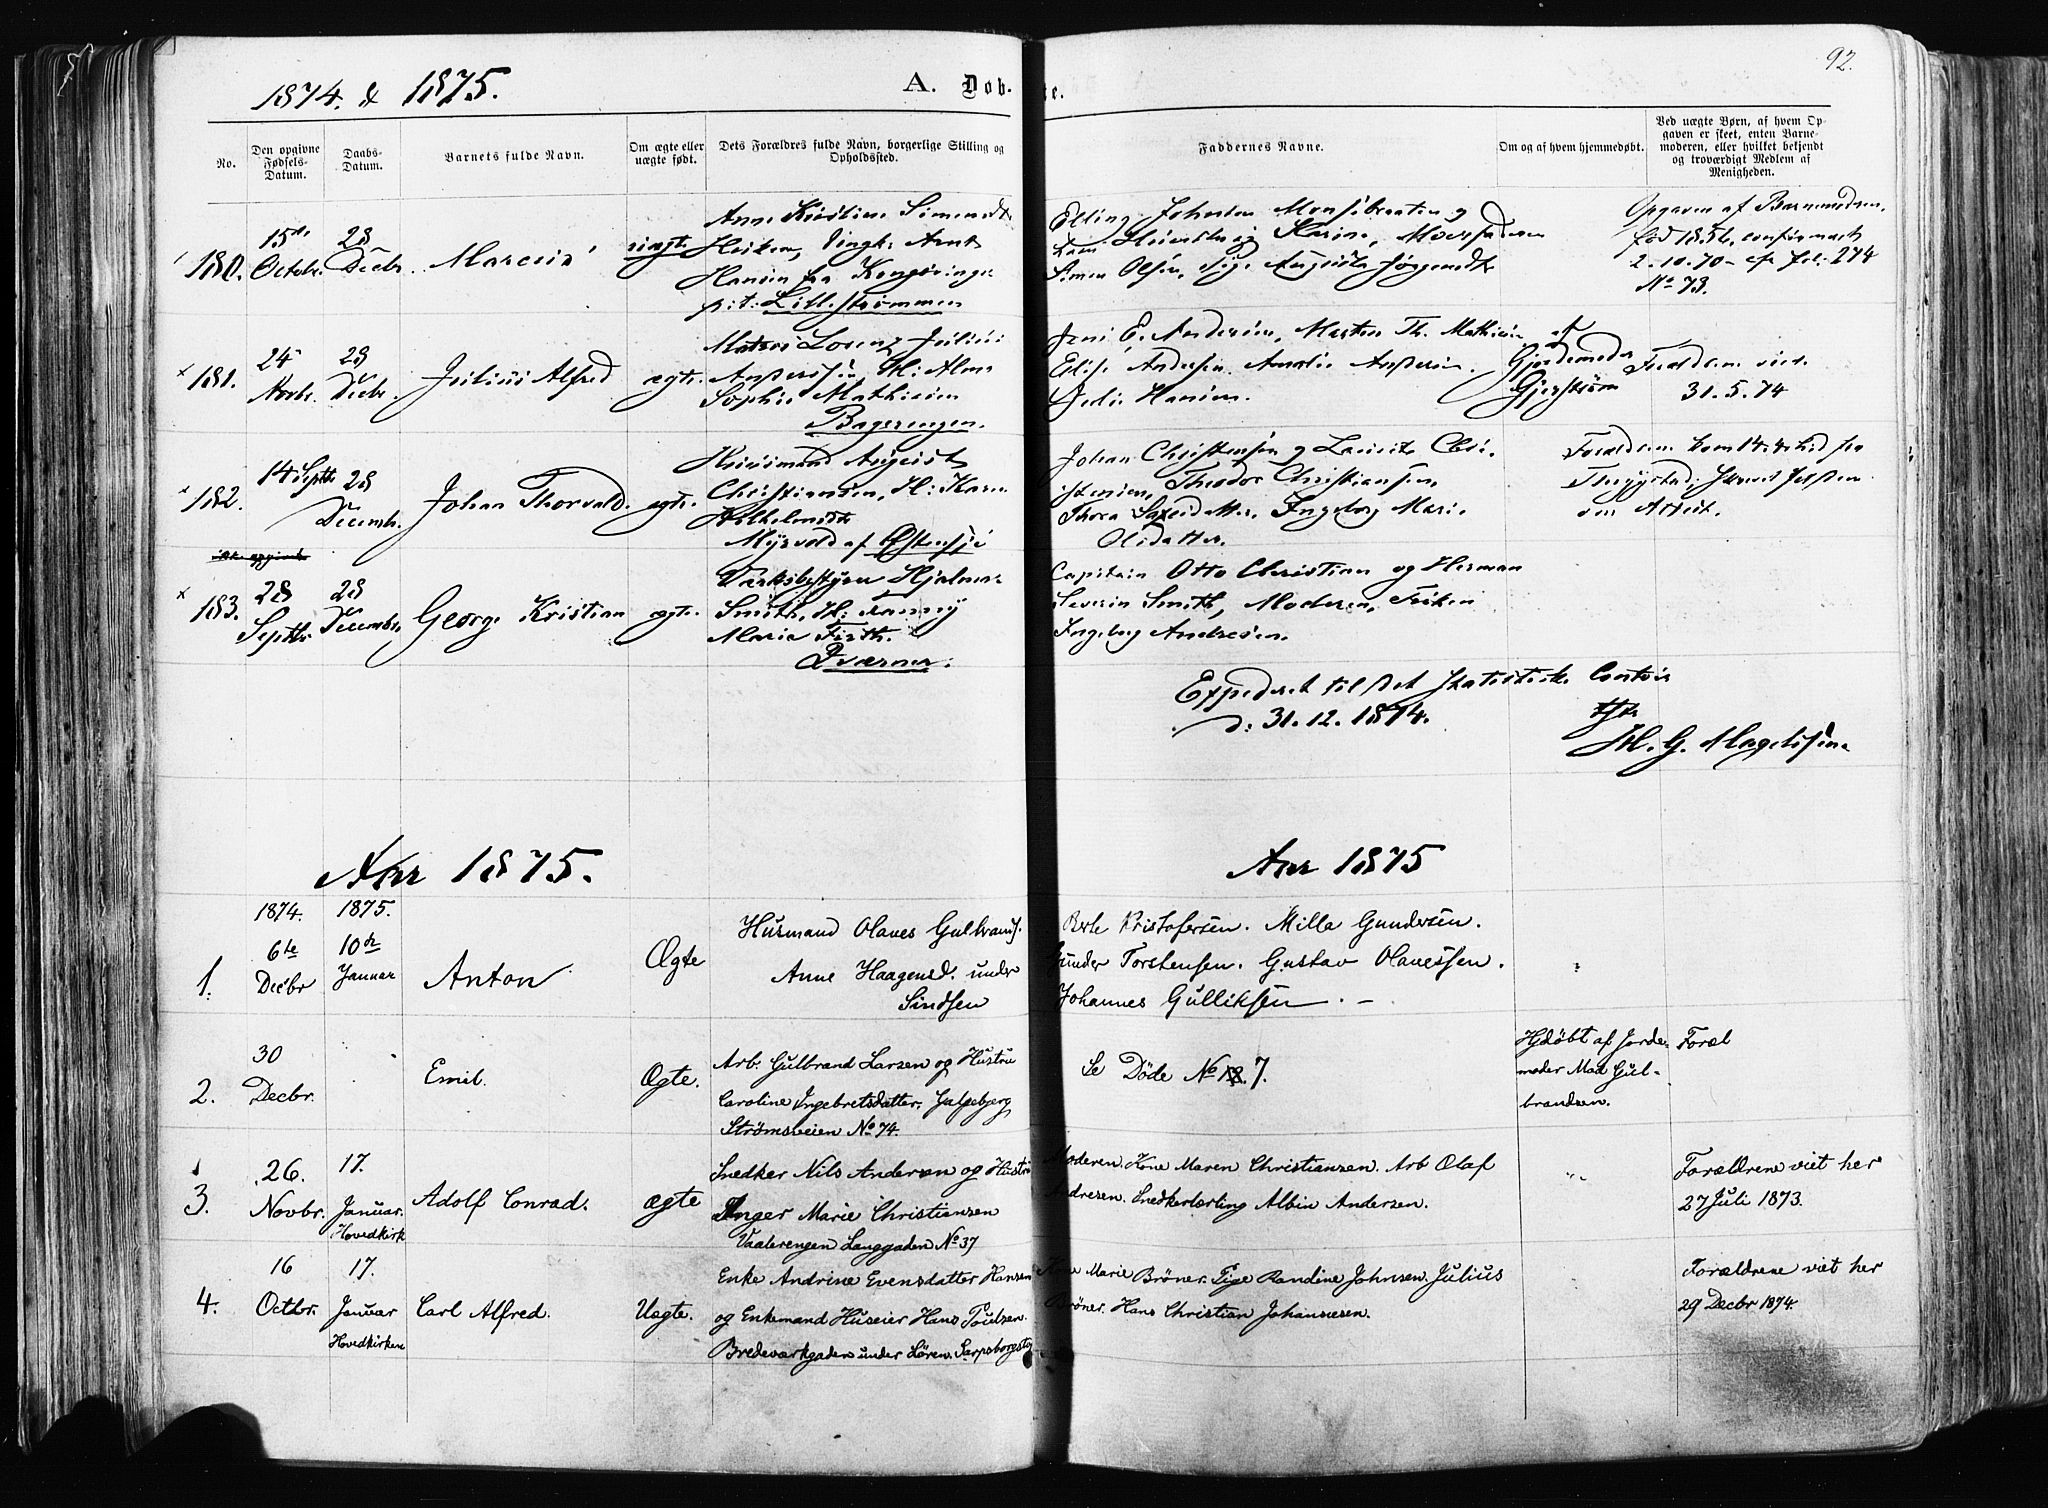 92.
1874. & 1875.
A. Døb- te.
No.
Den opgivne Fødsels-Datum.
Daabs-Datum.
Barnets fulde Navn.
Om ægte eller uægte født.
Dets Forældres fulde Navn, borgerlige Stilling og Opholdssted.
Faddernes Navne.
Om og af hvem hjemmedøbt.
Ved uægte Børn, af hvem Opgaven er skeet, enten Barnemoderen, eller hvilket bekjendt og troværdigt Medlem af Menigheden.
180.
15de Octobr.
28 Decbr.
uægte
Hansen fra Kongsvinger
p.t. Lillestrømmen
Simen Olsen, Pige Augusta Jørgensdtr
Opgaven af Barnemodren,
født 1856, confirmeret
2-10-70 - cfr fol: 274
No 73.
181.
24 Novbr.
28 Decbr.
Julius Alfred
ægte.
Lorenz Julius
Anderssen, H: Alma
Sophie Mathisen
Bageren
Jens E. Andersen, Marten Th. Mathisen
Elise Andersen, Amalie Andersen.
Julie Hansen.
af
Gjordemoder
Gjerstrøm
Forældrene viet
31.5.74
182.
14 Septbr
28 Decembr.
Johan Thorvald.
ægte.
Huusmand August
Christiansen, H: Karen
Wilhelmsdtr
Myrvold af Østensjø
Johan Christensen og Laurits Chri-
stensen, Theodor Christiansen,
Ingeborg Marie
Olsdatter.
183.
28 Septbr.
28 Decembr.
George Kristian
ægte.
Værksbestyrer Hjalmar
Smith, H: Fanny
Marie Firth.
Kværner.
Capitain Otto Christian og Herman
Severin Smith, Moderen, Frøken
Ingeborg Andresen.
Expederet til det statistiske Contoir
d: 31.12.1874.
H. G. Magelssen
Aar 1875.
Aar 1875
1874. 1875.
1.
6te Decbr
10de Januar
Anton
Ægte
Husmand Olaves Gulbrands.
Anne Haagensd. under
Sindsen
Berte Kristofersen. Milla Gundersen.
Gunder Torstensen. Gustav Olavessen.
Johannes Gulliksen
2.
30 Decbr.
Emil.
Ægte.
Arb. Gulbrand Larsen og Hustru
Caroline Ingebretsdatter, Galgebjerg
Strømsveien No 74.
Se Døde No 7.
Hjdøbt af Jorde-
moder Mad Gul-
brandsen.
Foræl
3.
26. Novbr.
17. Januar. Hovedkirk
Adolf Conrad.
ægte
Snedker Nils Andersen og Hustru
Inger Marie Christiansen
Vaalerengen Langgaden No 37
Moderen. Kone Maren Christiansen. Arb Olaf
Andresen. Snedkerlærling Albin Andersen.
Forældrene viet her
27 Juli 1873.
4.
16 Octbr.
17. Januar Hovedkirken
Carl Alfred.
Uægte.
Enke Andrine Evensdatter Hansen
og Enkemand Huseier Hans Poulsen.
Bredeværkgaden under Løren. Sarpsborgsty
Marie Brøner. Pige Randine Johnsen. Julius
Brøner. Hans Christian Johannesen.
Forældrene viet her
29 Decbr 1874.